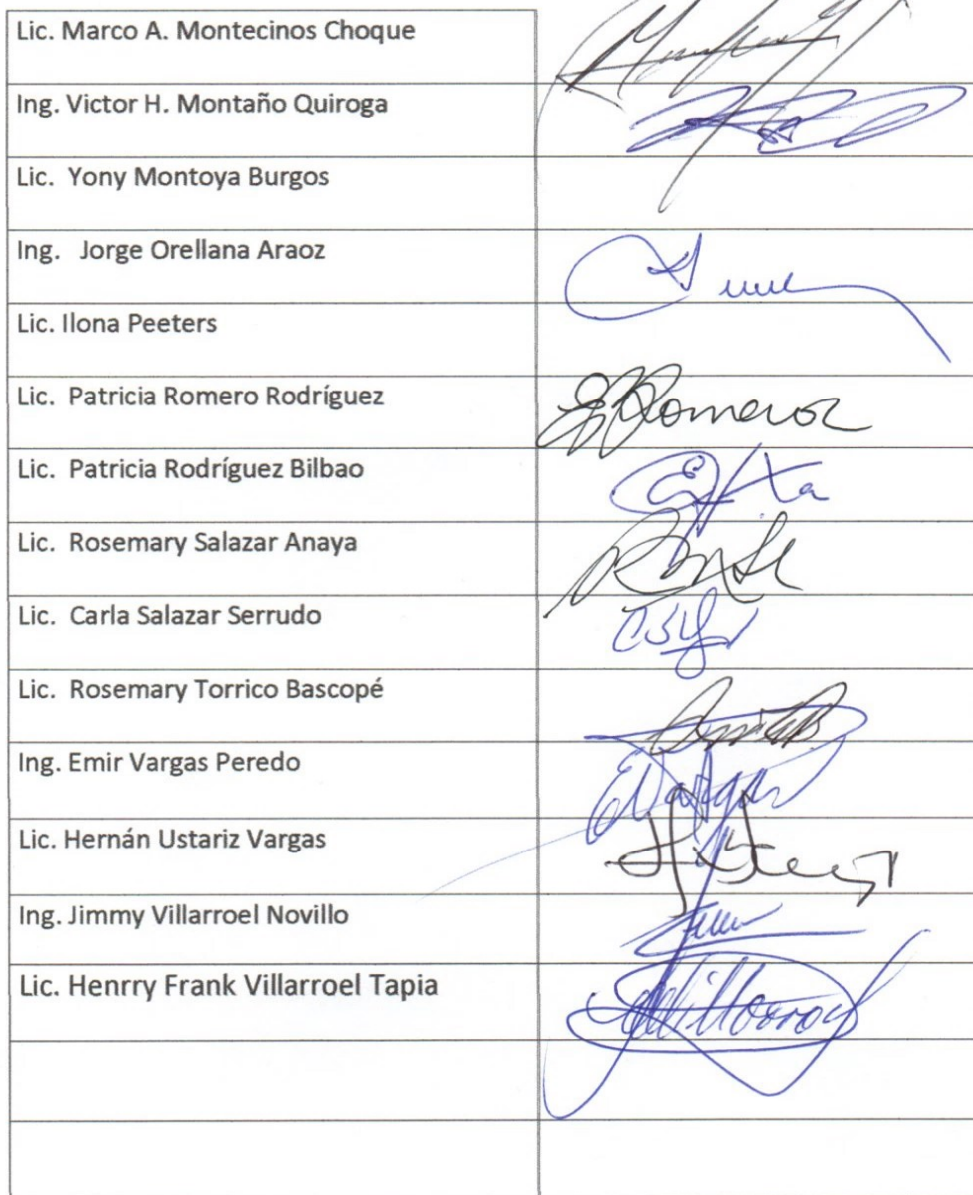 Lic. Marco A. Montecinos Choque
Ing. Victor H. Montaño Quiroga
Lic. Yony Montoya Burgos
Ing. Jorge Orellana Araoz
Lic. Ilona Peeters
Lic. Patricia Romero Rodríguez
Lic. Patricia Rodríguez Bilbao
Lic. Rosemary Salazar Anaya
Lic. Carla Salazar Serrudo
Lic. Rosemary Torrico Bascopé
Ing. Emir Vargas Peredo
Lic. Hernán Ustariz Vargas
Ing. Jimmy Villarroel Novillo
Lic. Henrry Frank Villarroel Tapia